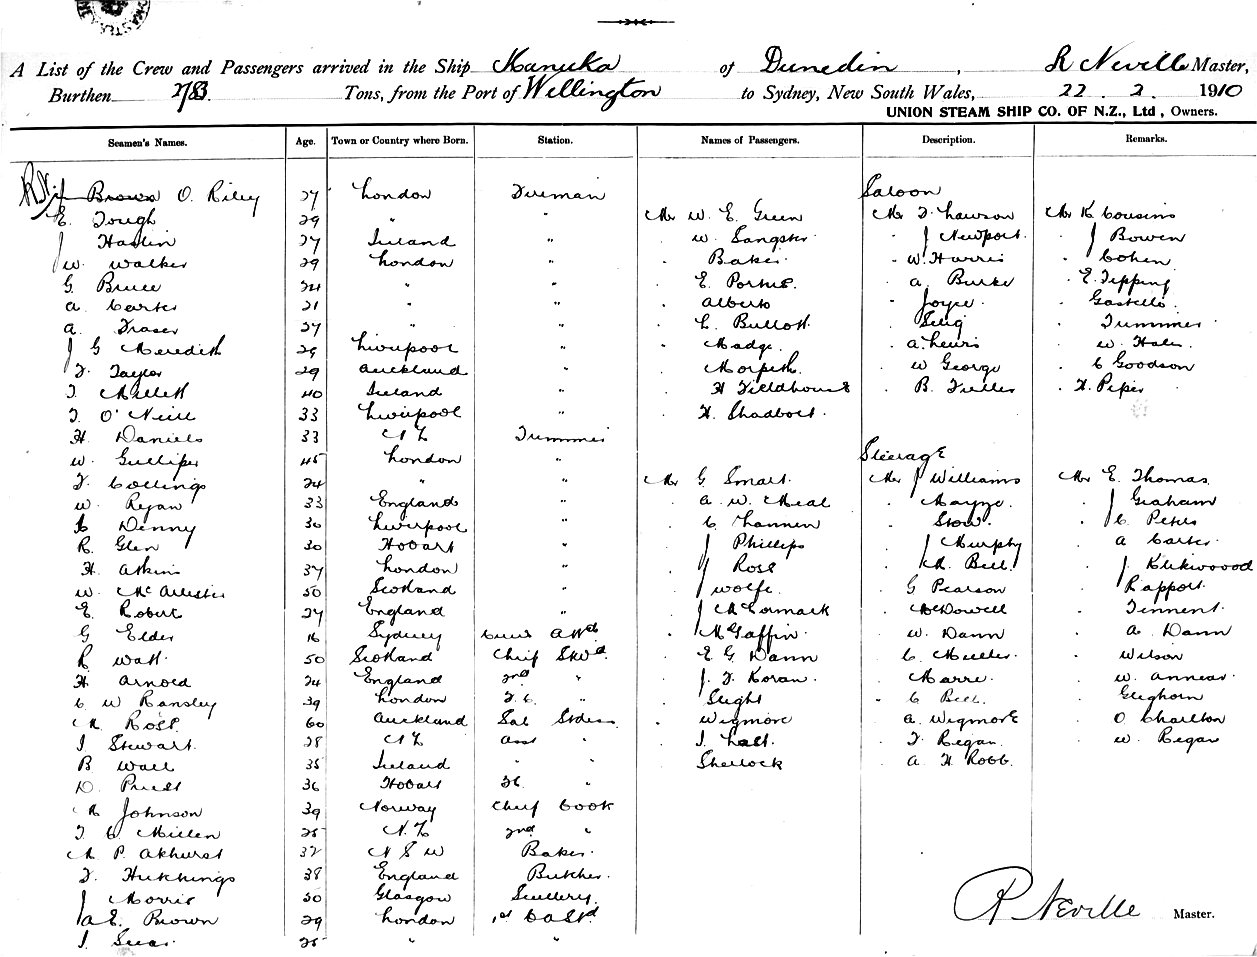 A List of the Crew and Passengers arrived in the Ship Manuka of Dunedin, R Neville Master,
Burthen 2783. Tons, from the Port of Wellington to Sydney, New South Wales, 22. 2. 1910
UNION STEAM SHIP CO. OF N.Z., Ltd, Owners.
Seamen's Names. Age. Town or Country where Born. Station. Names of Passengers. Description. Remarks.
Brown O. Riley 27 London Fireman Saloon
E. Tough 29 " " Mr W. E. Green Mr F Lawson Mr K Cousins
J Haslin 27 Ireland " " W. Sangster " J Newport " J Bowen
W. Walker 29 London " " Baker " W. Harris " Cohen
G Bruce 24 " " " E Porter " A. Burke " E. Tepping
A. Carter 21 " " " Alberto " Joyce " Gastello
A. Fraser 27 " " " L. Bullott " Selig " Trimmer
J G Meredith 29 Liverpool " " Madge " A. Lewis " W. Hales
F. Taylor 29 Auckland " " Morpeth " W George " C Goodson
T. Millett 40 Ireland " " H Fieldhouse " B. Fuller " H. Piper
T. O'Neill 33 Liverpool " " H. Shadbolt
H. Daniels 33 N Z Trimmer
W. Gulliper 45 London " Steerage
F. Collings 24 " " Mr G Smart Mr J Williams Mr E. Thomas
W. Regan 33 England " " A. W. Meal " Mayze " J Graham
L Denny 30 Liverpool " " C. Lannen " Stow " C Peters
R. Glen 30 Hobart " " J Phillips " J Murphy " A Carter
H. Atkins 37 London " " J Rose " M. Bell " J. Kirkwoood
W. McAllister 50 Scotland " " J Wolfe " G Pearson " Rapport
E. Robert 27 England " " J McCormack " McDowell " Tennent
G Elder 16 Sydney Crews Attd " McGaffin " W. Dann " A Dann
R Watt 50 Scotland Chief Stwd " E G Dann " C. Muller " Wilson
H Arnold 24 England 2nd " " J. F Koran " Marre " W. Annear
C W Ransley 39 London F. C. " " Slight " C Bell " Gleghorn
M Ross 60 Auckland Sal Stdess " Wigmore " A. Wigmore " O Charlton
J. Stewart 28 N Z Asst " " J. Hall " F Regan " W. Regan
B Wall 35 Ireland " " " Sherlock " A H Robb
D. Priest 36 Hobart "
M Johnson 39 Norway Chief Cook
T C. Millen 25 N. Z 2nd "
M P. Akhurst 32 N S W Baker
F. Hutchings 38 England Butcher
J Morris 50 Glasgow Scullery
A E. Brown 29 London 1st
J. 25 " "
R Neville Master.